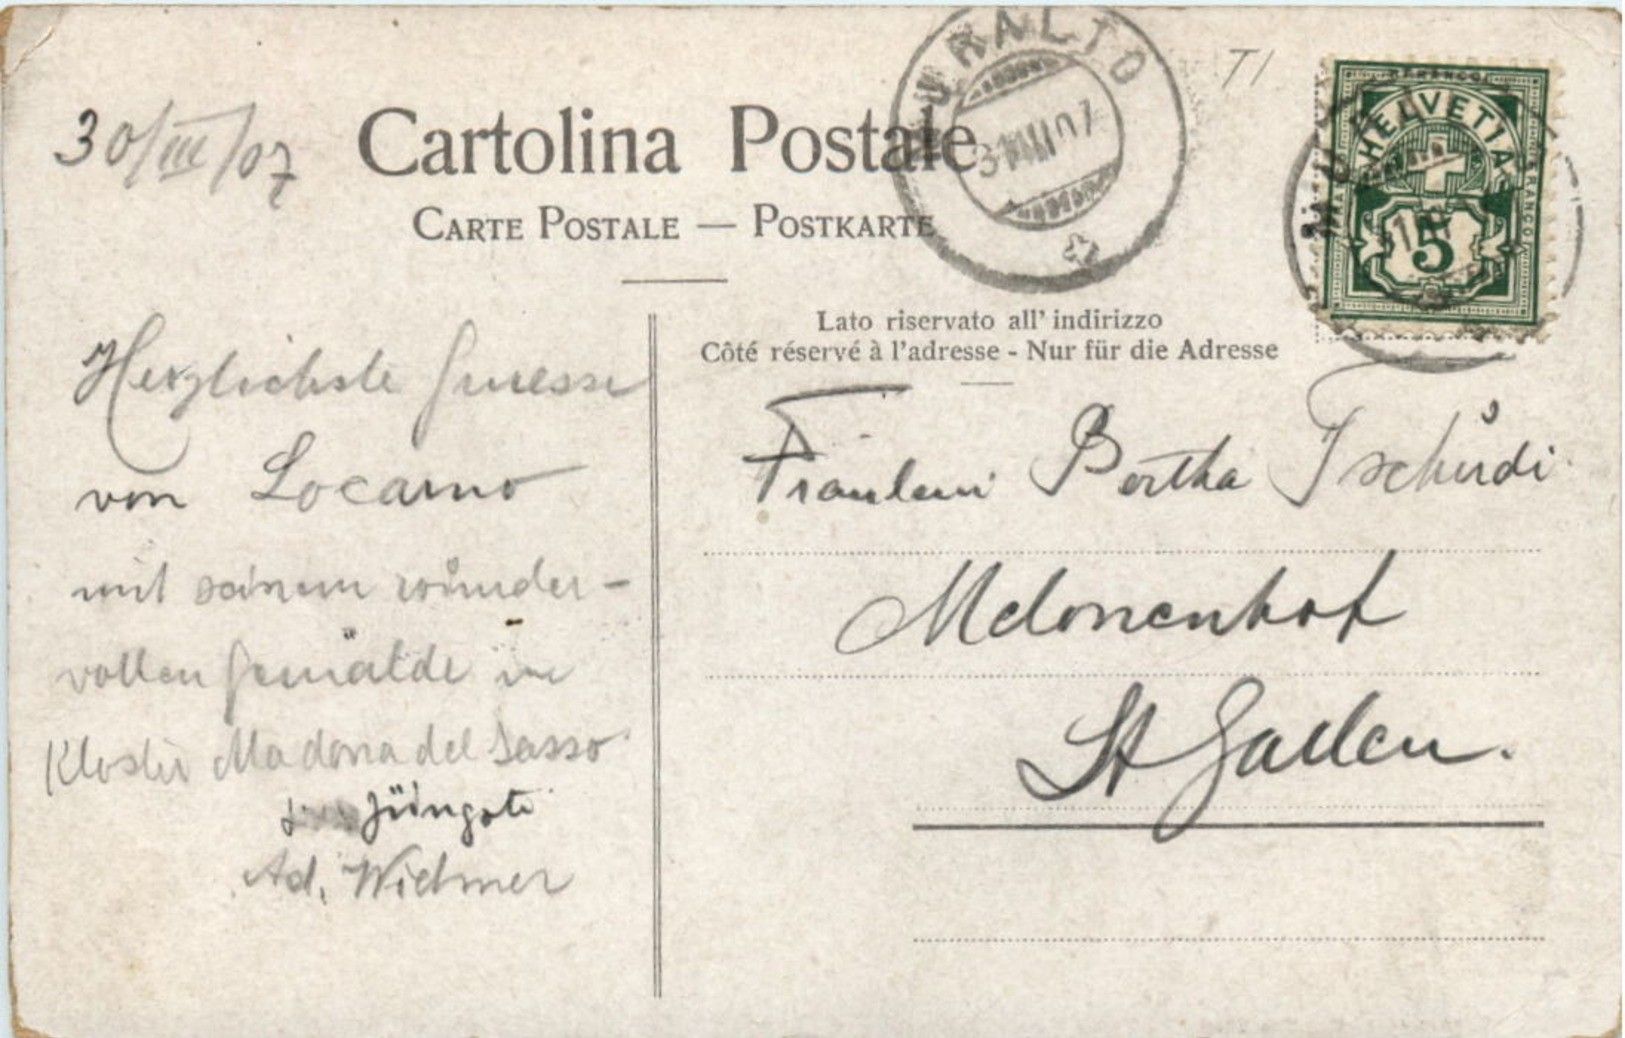 30/III/07
Cartolina Postale
CARTE POSTALE — POSTKARTE
URALTO
31 III 07
TI
FRANCO
HELVETIA
FRANCO
5
Lato riservato all' indirizzo
Côté réservé à l'adresse - Nur für die Adresse
Herzlichste Gruesse
von Locarno
mit seinem wunder-
vollen Gemälde im
Kloster Madona del Sasso
Ad. Widmer
Fräulein Bertha Tschudi
Melonenhof
St Gallen.